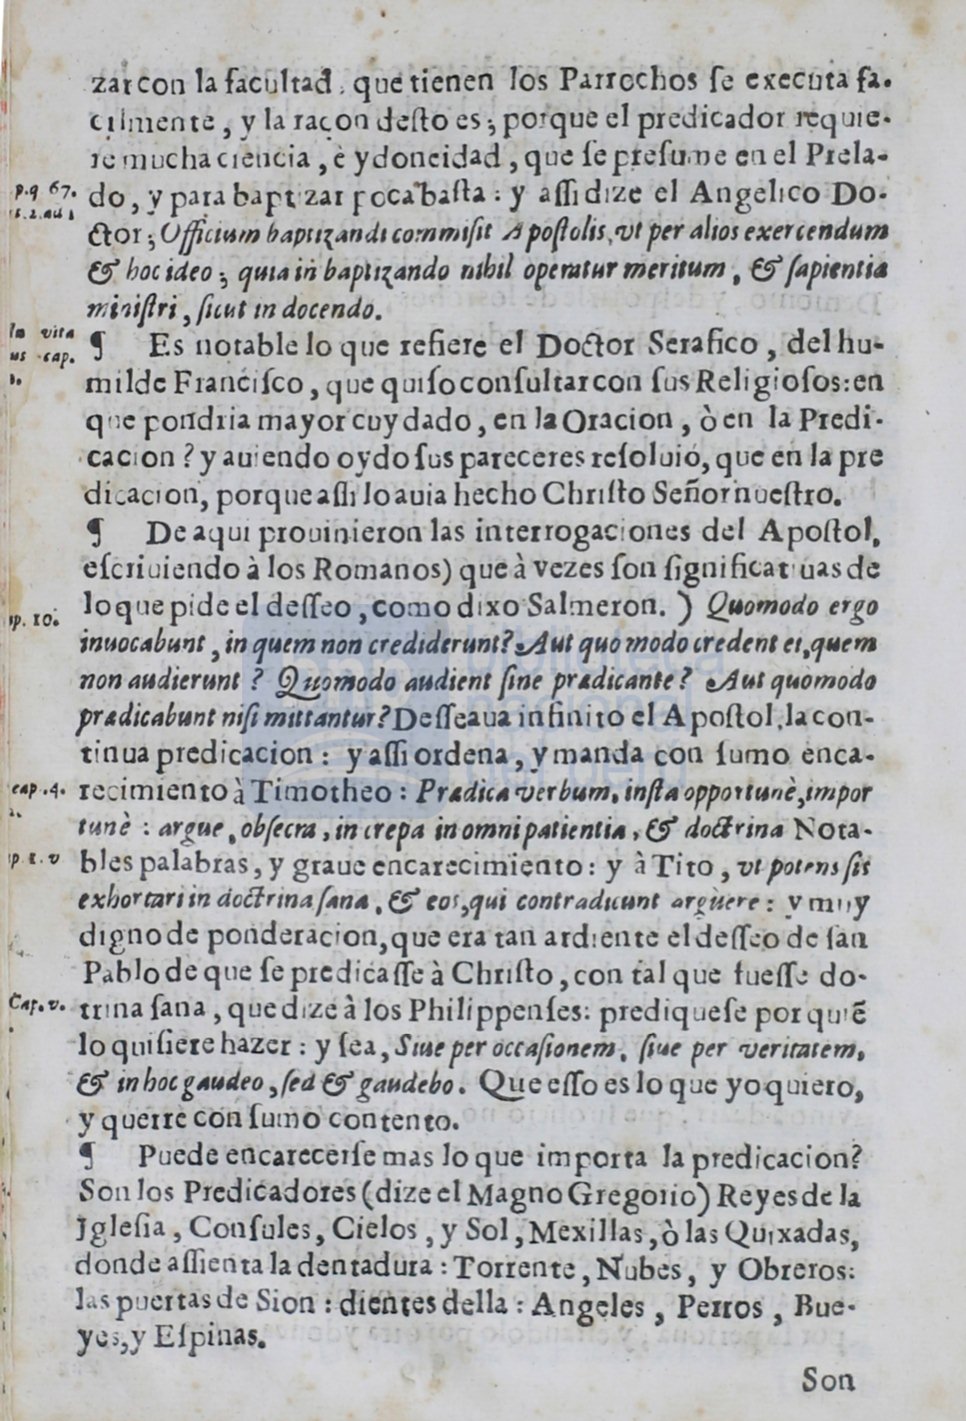 zar con la facultad, que tienen los Parrochos se executa fa-
cilmente, y la raçon desto es; porque el predicador requie-
re mucha ciencia, è ydoneidad, que se presume en el Prela-
p.q 67. do, y para baptizar poca basta: y assi dize el Angelico Do-
ctor; Officium baptizandi commisit Apostolis, vt per alios exercendum
& hoc ideo; quia in baptizando nihil operatur meritum, & sapientia
ministri, sicut in docendo.
In vita ¶ Es notable lo que refiere el Doctor Serafico, del hu-
us cap. milde Francisco, que quiso consultar con sus Religiosos: en
que pondria mayor cuydado, en la Oracion, ò en la Predi-
cacion? y auiendo oydo sus pareceres resoluio, que en la pre
dicacion, porque assi lo auia hecho Christo Señor nuestro.
¶ De aqui prouinieron las interrogaciones del Apostol,
escriuiendo à los Romanos) que à vezes son significatiuas de
lo que pide el desseo, como dixo Salmeron. ) Quomodo ergo
ap. 10. inuocabunt, in quem non crediderunt? Aut quomodo credent ei, quem
non audierunt? Quomodo audient sine prædicante? Aut quomodo
prædicabunt nisi mittantur? Desseaua infinito el Apostol, la con-
tinua predicacion: y assi ordena, y manda con sumo enca-
cap. 4. recimiento à Timotheo: Prædica verbum, insta opportunè, impor
tunè: argue, obsecra, increpa in omni patientia, & doctrina Nota-
p 1. v bles palabras, y graue encarecimiento: y à Tito, vt potens sit
exhortari in doctrina sana, & eos, qui contradicunt arguere: y muy
digno de ponderacion, que era tan ardiente el desseo de san
Pablo de que se predicasse à Christo, con tal que fuesse do-
Cap. v. trina sana, que dize à los Philippenses: prediquese por quiẽ
lo quisiere hazer: y sea, Siue per occasionem, siue per veritatem,
& in hoc gaudeo, sed & gaudebo. Que esso es lo que yo quiero,
y querrè con sumo contento.
¶ Puede encarecerse mas lo que importa la predicacion?
Son los Predicadores (dize el Magno Gregorio) Reyes de la
Iglesia, Consules, Cielos, y Sol, Mexillas, ò las Quixadas,
donde assienta la dentadura: Torrente, Nubes, y Obreros:
las puertas de Sion: dientes della: Angeles, Perros, Bue-
yes, y Espinas.
Son